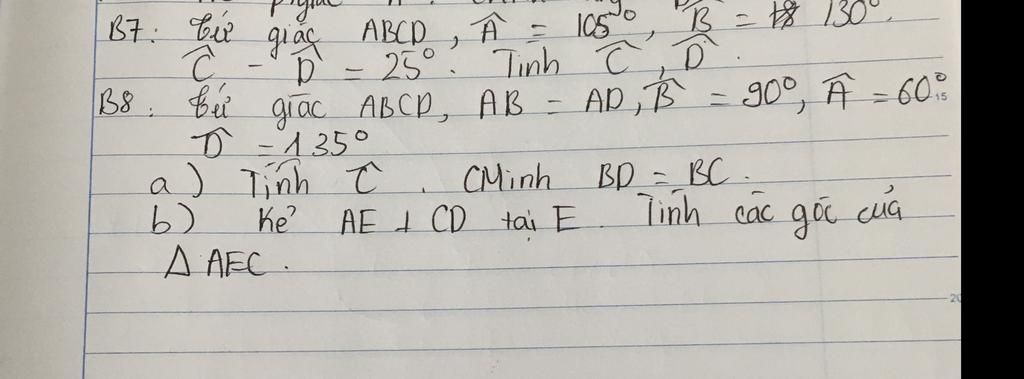 B7: Tứ giác ABCD, Â = 105°, B̂ = 130°.
Ĉ - D̂ = 25°. Tính Ĉ, D̂.
B8: Tứ giác ABCD, AB = AD, B̂ = 90°, Â = 60°
15
D̂ = 135°
a) Tính Ĉ. CMinh BD = BC.
b) Kẻ AE ⊥ CD tại E. Tính các góc của
Δ AEC.
20